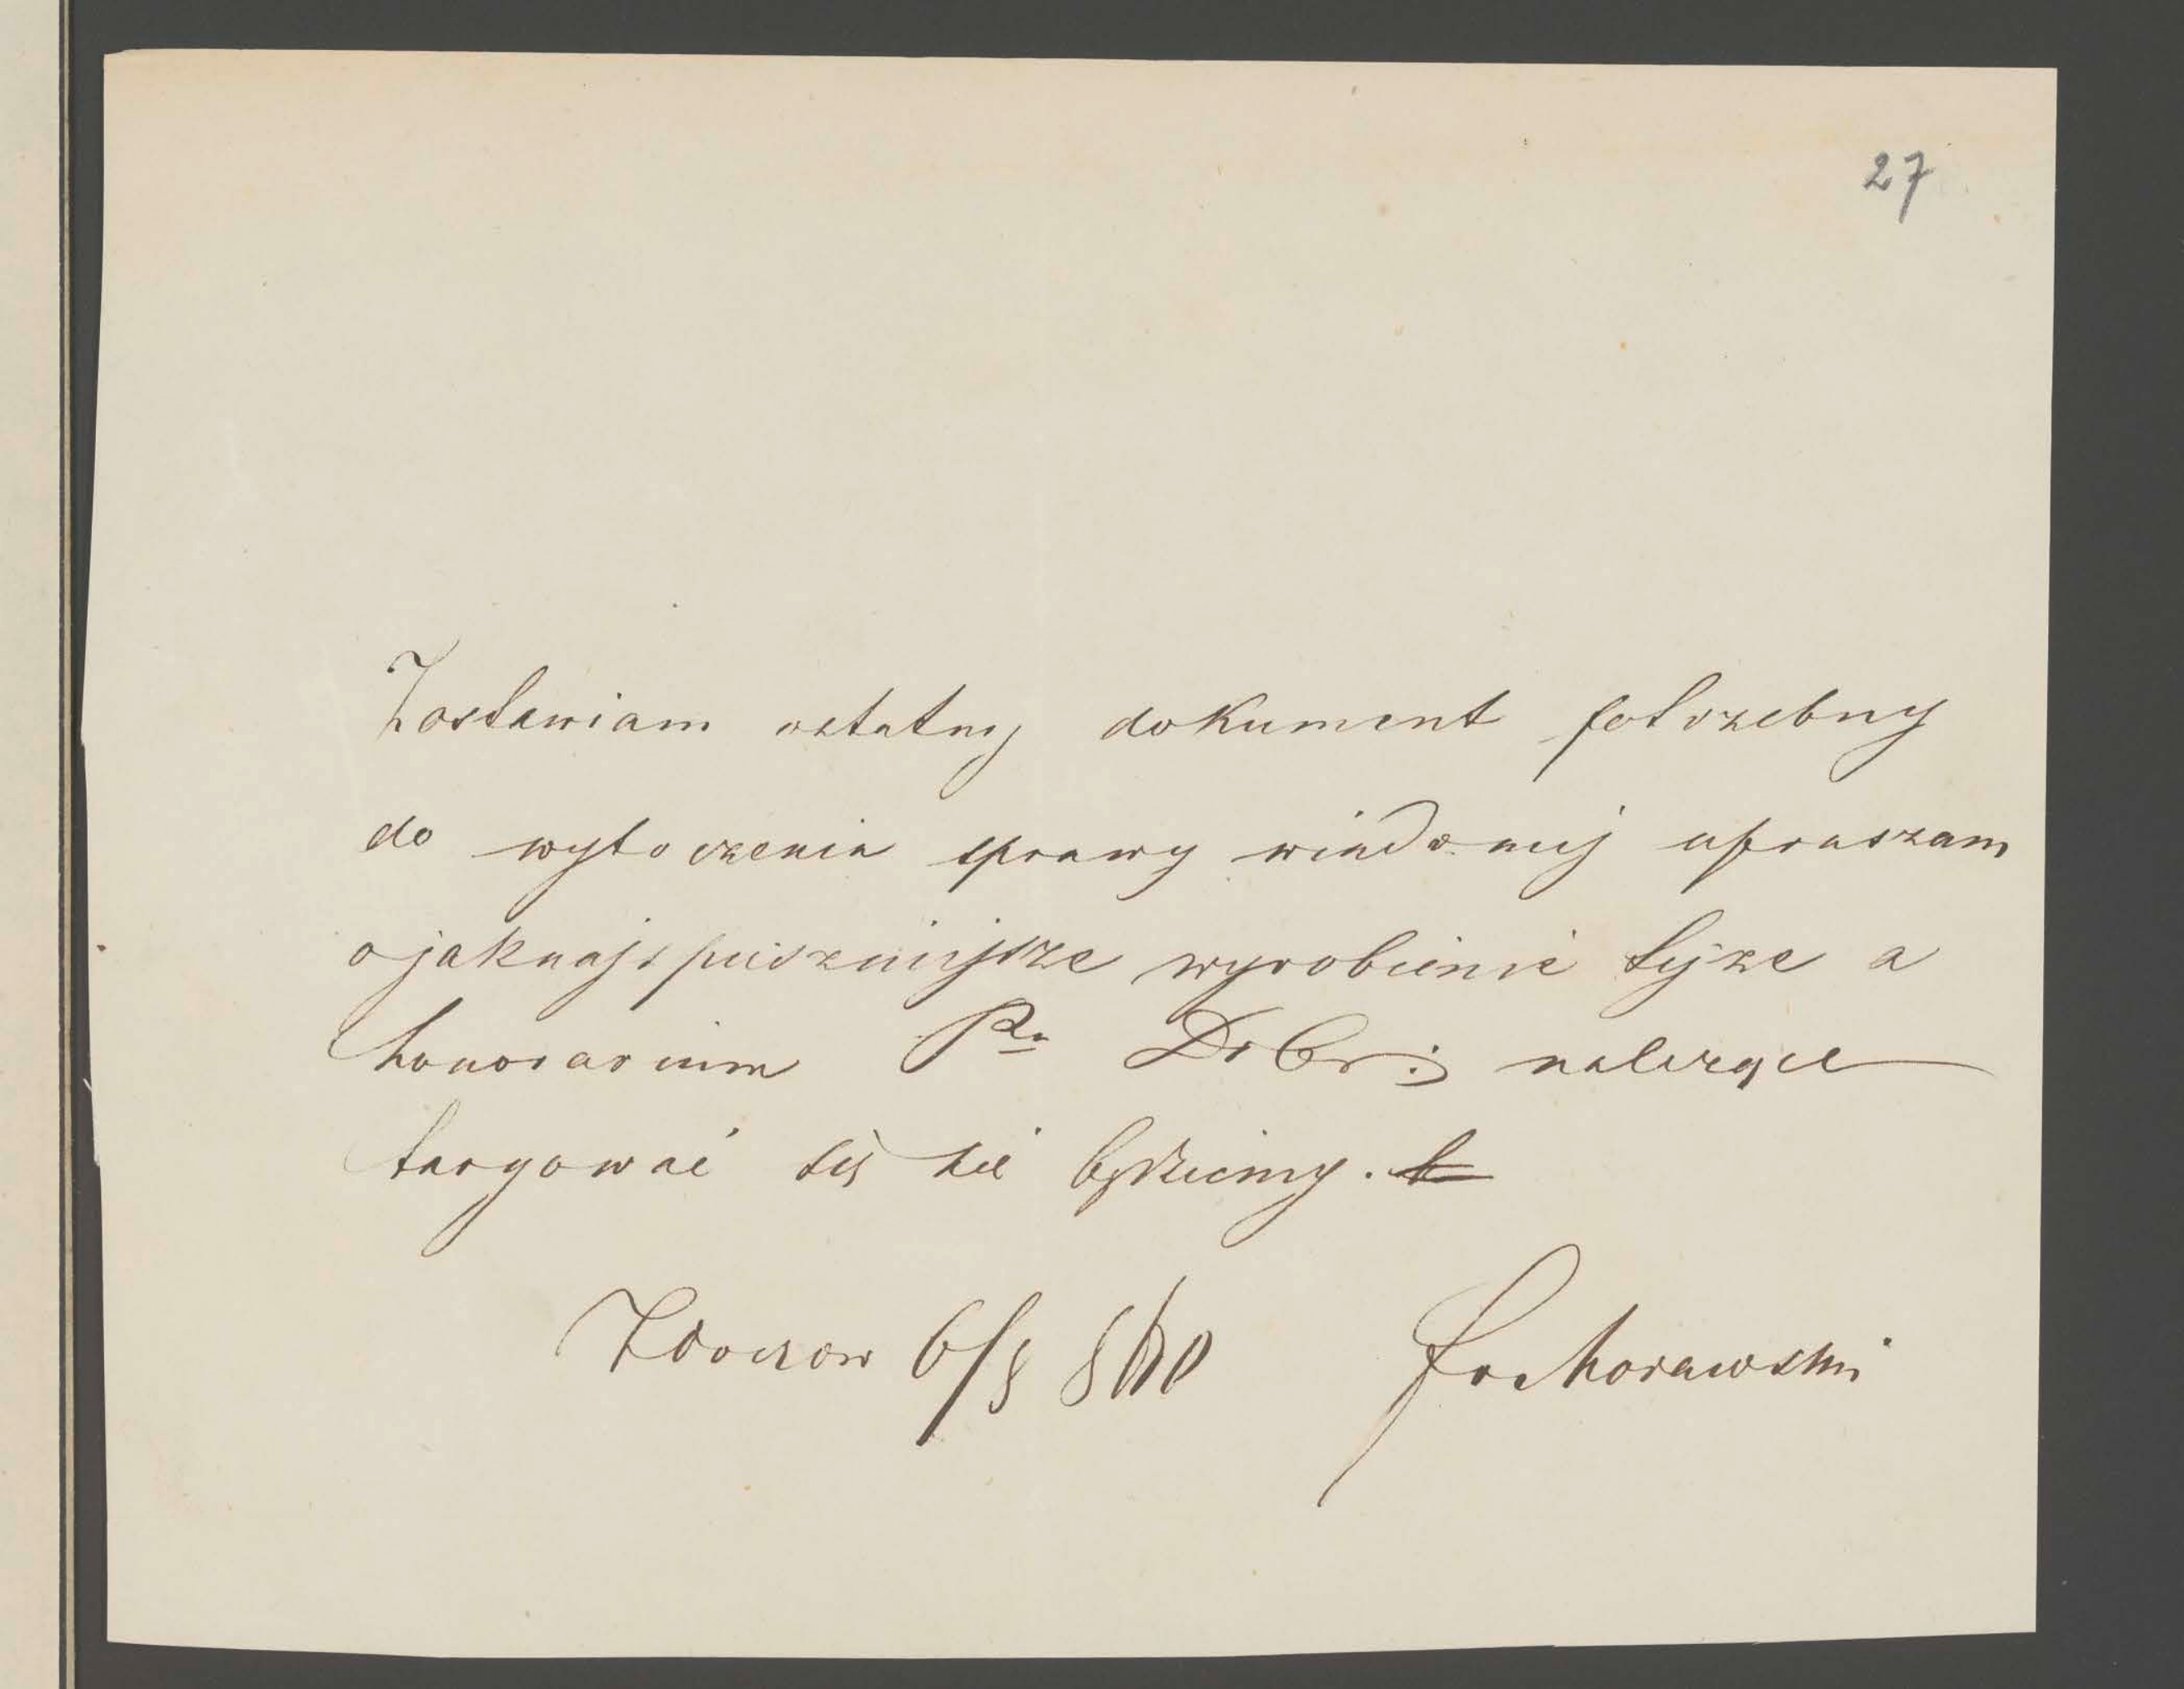 27
Zostawiam ostatny dokument potrzebny
do wytoczenia sprawy wiadomej upraszam
o jaknajspieszniejsze wyrobienie tejze a
honorarium Pa Dobr: nalezące
targować się nie będziemy.
6/8 860 Morawski